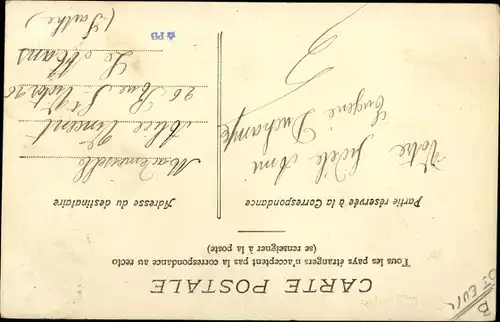 CARTE POSTALE
Tous les pays étrangers n'acceptent pas la correspondance au recto
(se renseigner à la poste)
Partie réservée à la Correspondance
Adresse du destinataire
Votre fidèle Ami
Eugène
Mademoiselle
Alice Vincent
96 Rue
Le Mans
(Sarthe)
☆PB